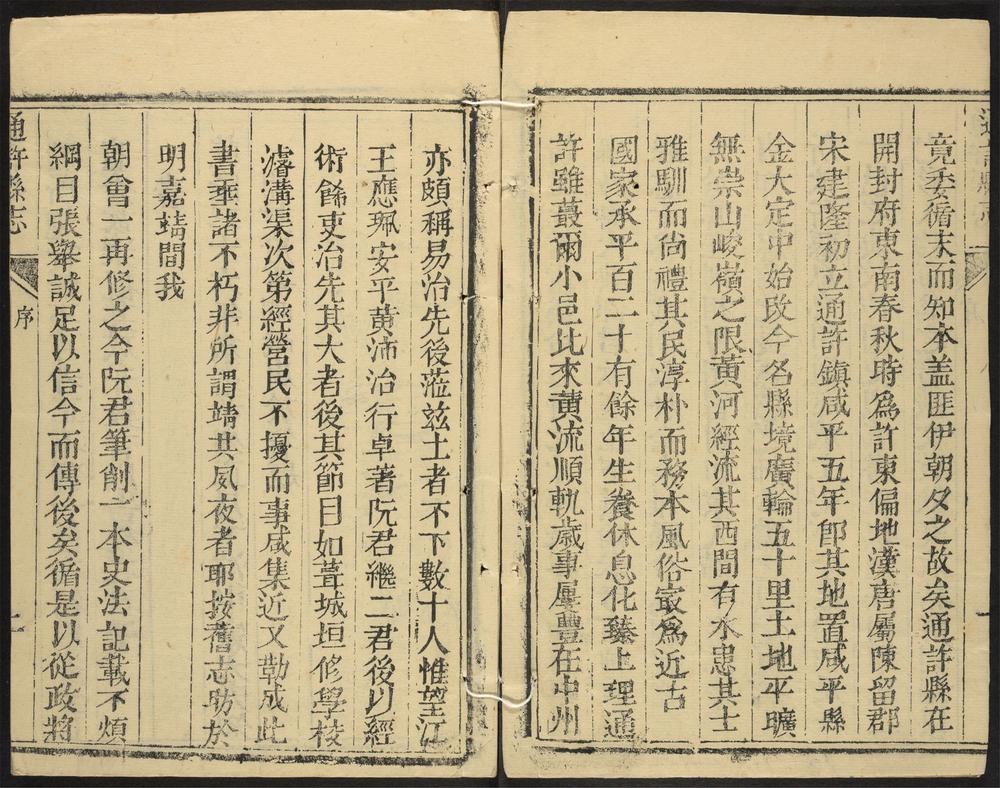 竟委循末而知本盖匪伊朝夕之故矣通許縣在
開封府東南春秋時爲許東偏地漢唐屬陳留郡
宋建隆初立通許鎮咸平五年卽其地置咸平縣
金大定中始改今名縣境廣輪五十里土地平曠
無崇山峻嶺之限黃河經流其西間有水患其士
雅馴而尚禮其民淳朴而務本風俗冣爲近古
國家承平百二十有餘年生養休息化臻上理通
許雖蕞爾小邑比來黄流順軌歲事屢豐在中州
亦頗稱易治先後蒞玆土者不下數十人惟望江
王應珮安平黃沛治行卓著阮君繼二君後以經
術餙吏治先其大者後其節目如葺城垣修學校
濬溝渠次第經營民不擾而事咸集近又勒成此
書垂諸不朽非所謂靖共夙夜者耶按舊志昉於
明嘉靖間我
朝曾一再修之今阮君筆削一本史法記載不煩
綱目張舉誠足以信今而傳後矣循是以從政將
通許縣志
序